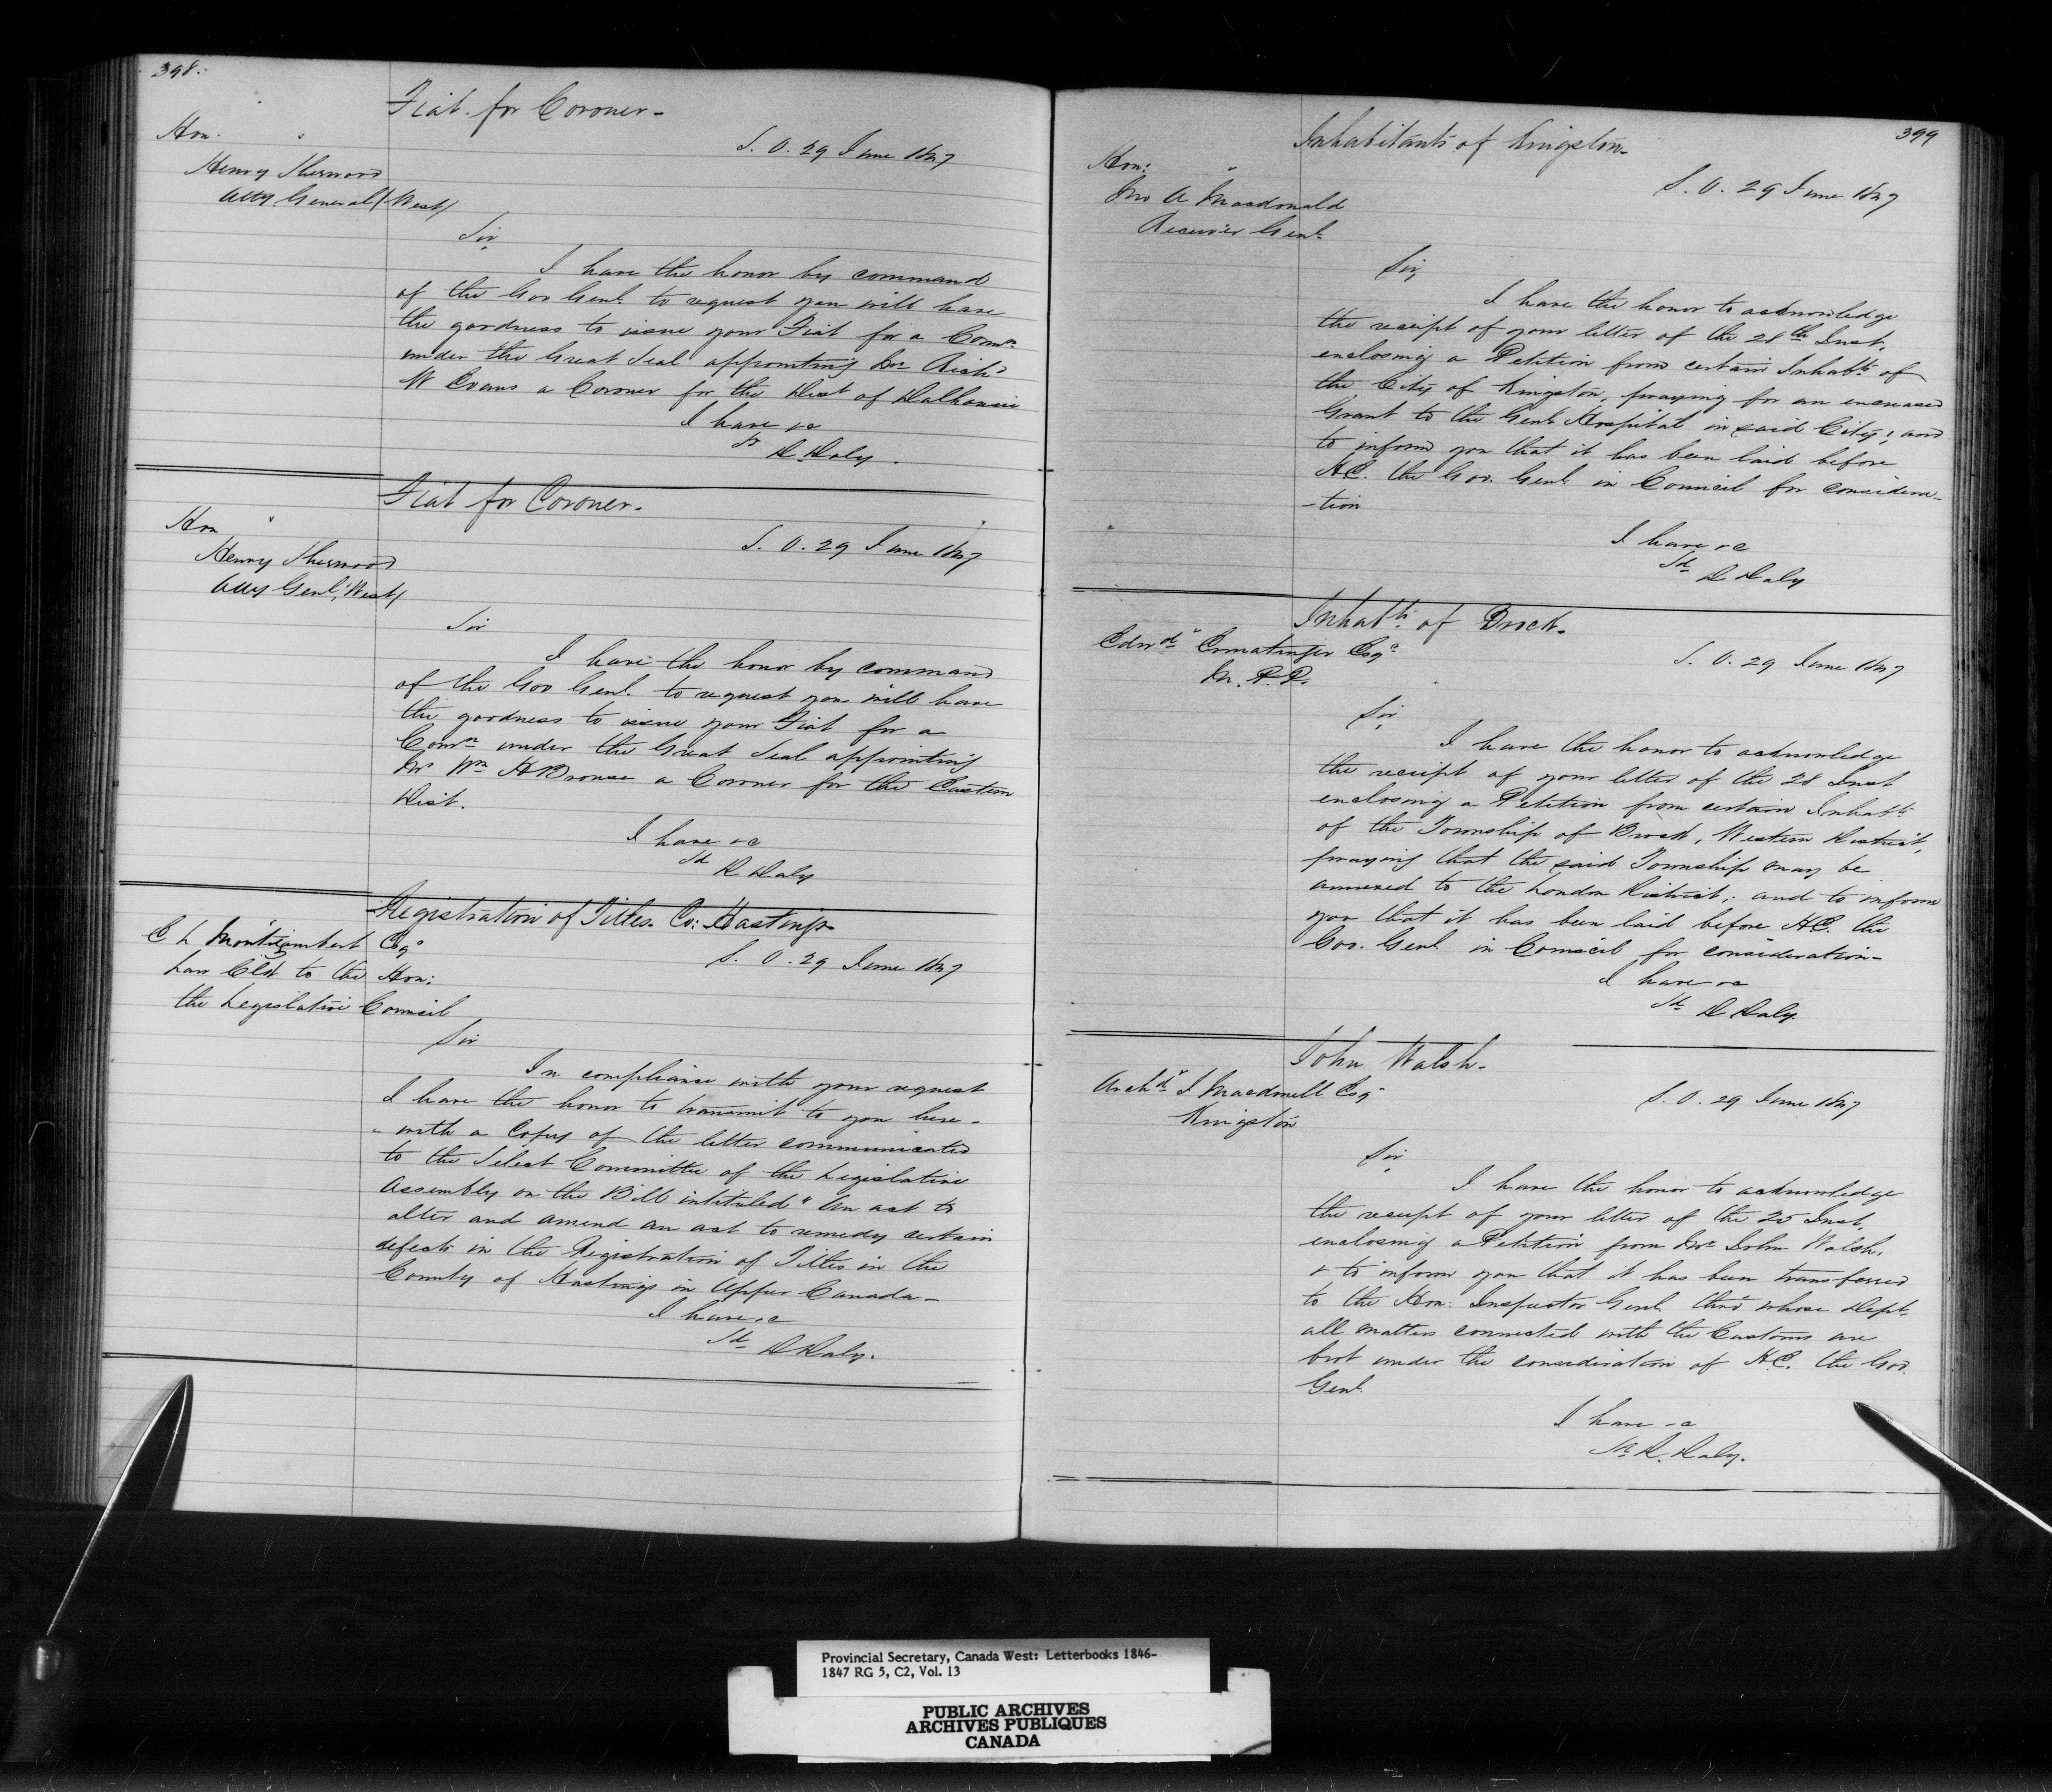 398.
Fiat for Coroner-
Hon.
S. O. 29 June 1847
Henry Sherwood
Atty General (West)
Sir
I have the honor by command
of the Gov Genl. to request you will have
the goodness to issue your Fiat for a Comn
under the Great Seal appointing Dr Richd
W Evans a Coroner for the Dist of Dalhousie
I have &c
D Daly.
Fiat for Coroner.
Hon
S. O. 29 June 1847
Henry Sherwood
Atty Genl. (West)
Sir
I have the honor by command
of the Gov Genl. to request you will have
the goodness to issue your Fiat for a
Comn under the Great Seal appointing
Mr Wm H Brouse a Coroner for the Eastern
Dist.
I have &c
Sd
D Daly
Registration of Titles. Co: Hastings
C L Montizambert Esqe
S. O. 29 June 1847
Law Clk to the Hon:
the Legislative Council
Sir
In compliance with your request
I have the honor to transmit to you here-
- with a Copy of the letter communicated
to the Select Committee of the Legislative
Assembly on the Bill intituled "An act to
alter and amend an act to remedy certain
defects in the Registration of Titles in the
County of Hastings in Upper Canada-
I have &c
Sd D Daly.
399
Inhabitants of Kingston-
Hon:
S. O. 29 June 1847
Jno A Macdonald
Receiver Genl
Sir
I have the honor to acknowledge
the receipt of your letter of the 28th Inst.
enclosing a Petition from certain Inhabts of
the City of Kingston, praying for an increased
Grant to the Genl Hospital in said City; and
to inform you that it has been laid before
H.E. the Gov. Genl in Council for considera-
-tion
I have &c
Sd D Daly
Inhabts of Brock.
Edwd Ermatinger Esqe
S. O. 29 June 1847
M. P. P.
Sir
I have the honor to acknowledge
the receipt of your letter of the 28 Inst
enclosing a Petition from certain Inhabts
of the Township of Brock, Western District,
praying that the said Township may be
annexed to the London District; and to inform
you that it has been laid before H.E. the
Gov. Genl in Council for consideration-
I have &c
Sd D Daly.
John Walsh-
Archd J Macdonell Esq
S. O. 29 June 1847
Kingston
Sir
I have the honor to acknowledge
the receipt of your letter of the 25 Inst,
enclosing a Petition from Mr John Walsh,
& to inform you that it has been transferred
to the Hon: Inspector Genl. thro' whose Dept.
all matters connected with the Customs are
brot under the consideration of H.E. the Gov.
Genl.
I have &c
Sd D. Daly.
Provincial Secretary, Canada West: Letterbooks 1846-
1847 RG 5, C2, Vol. 13
PUBLIC ARCHIVES
ARCHIVES PUBLIQUES
CANADA